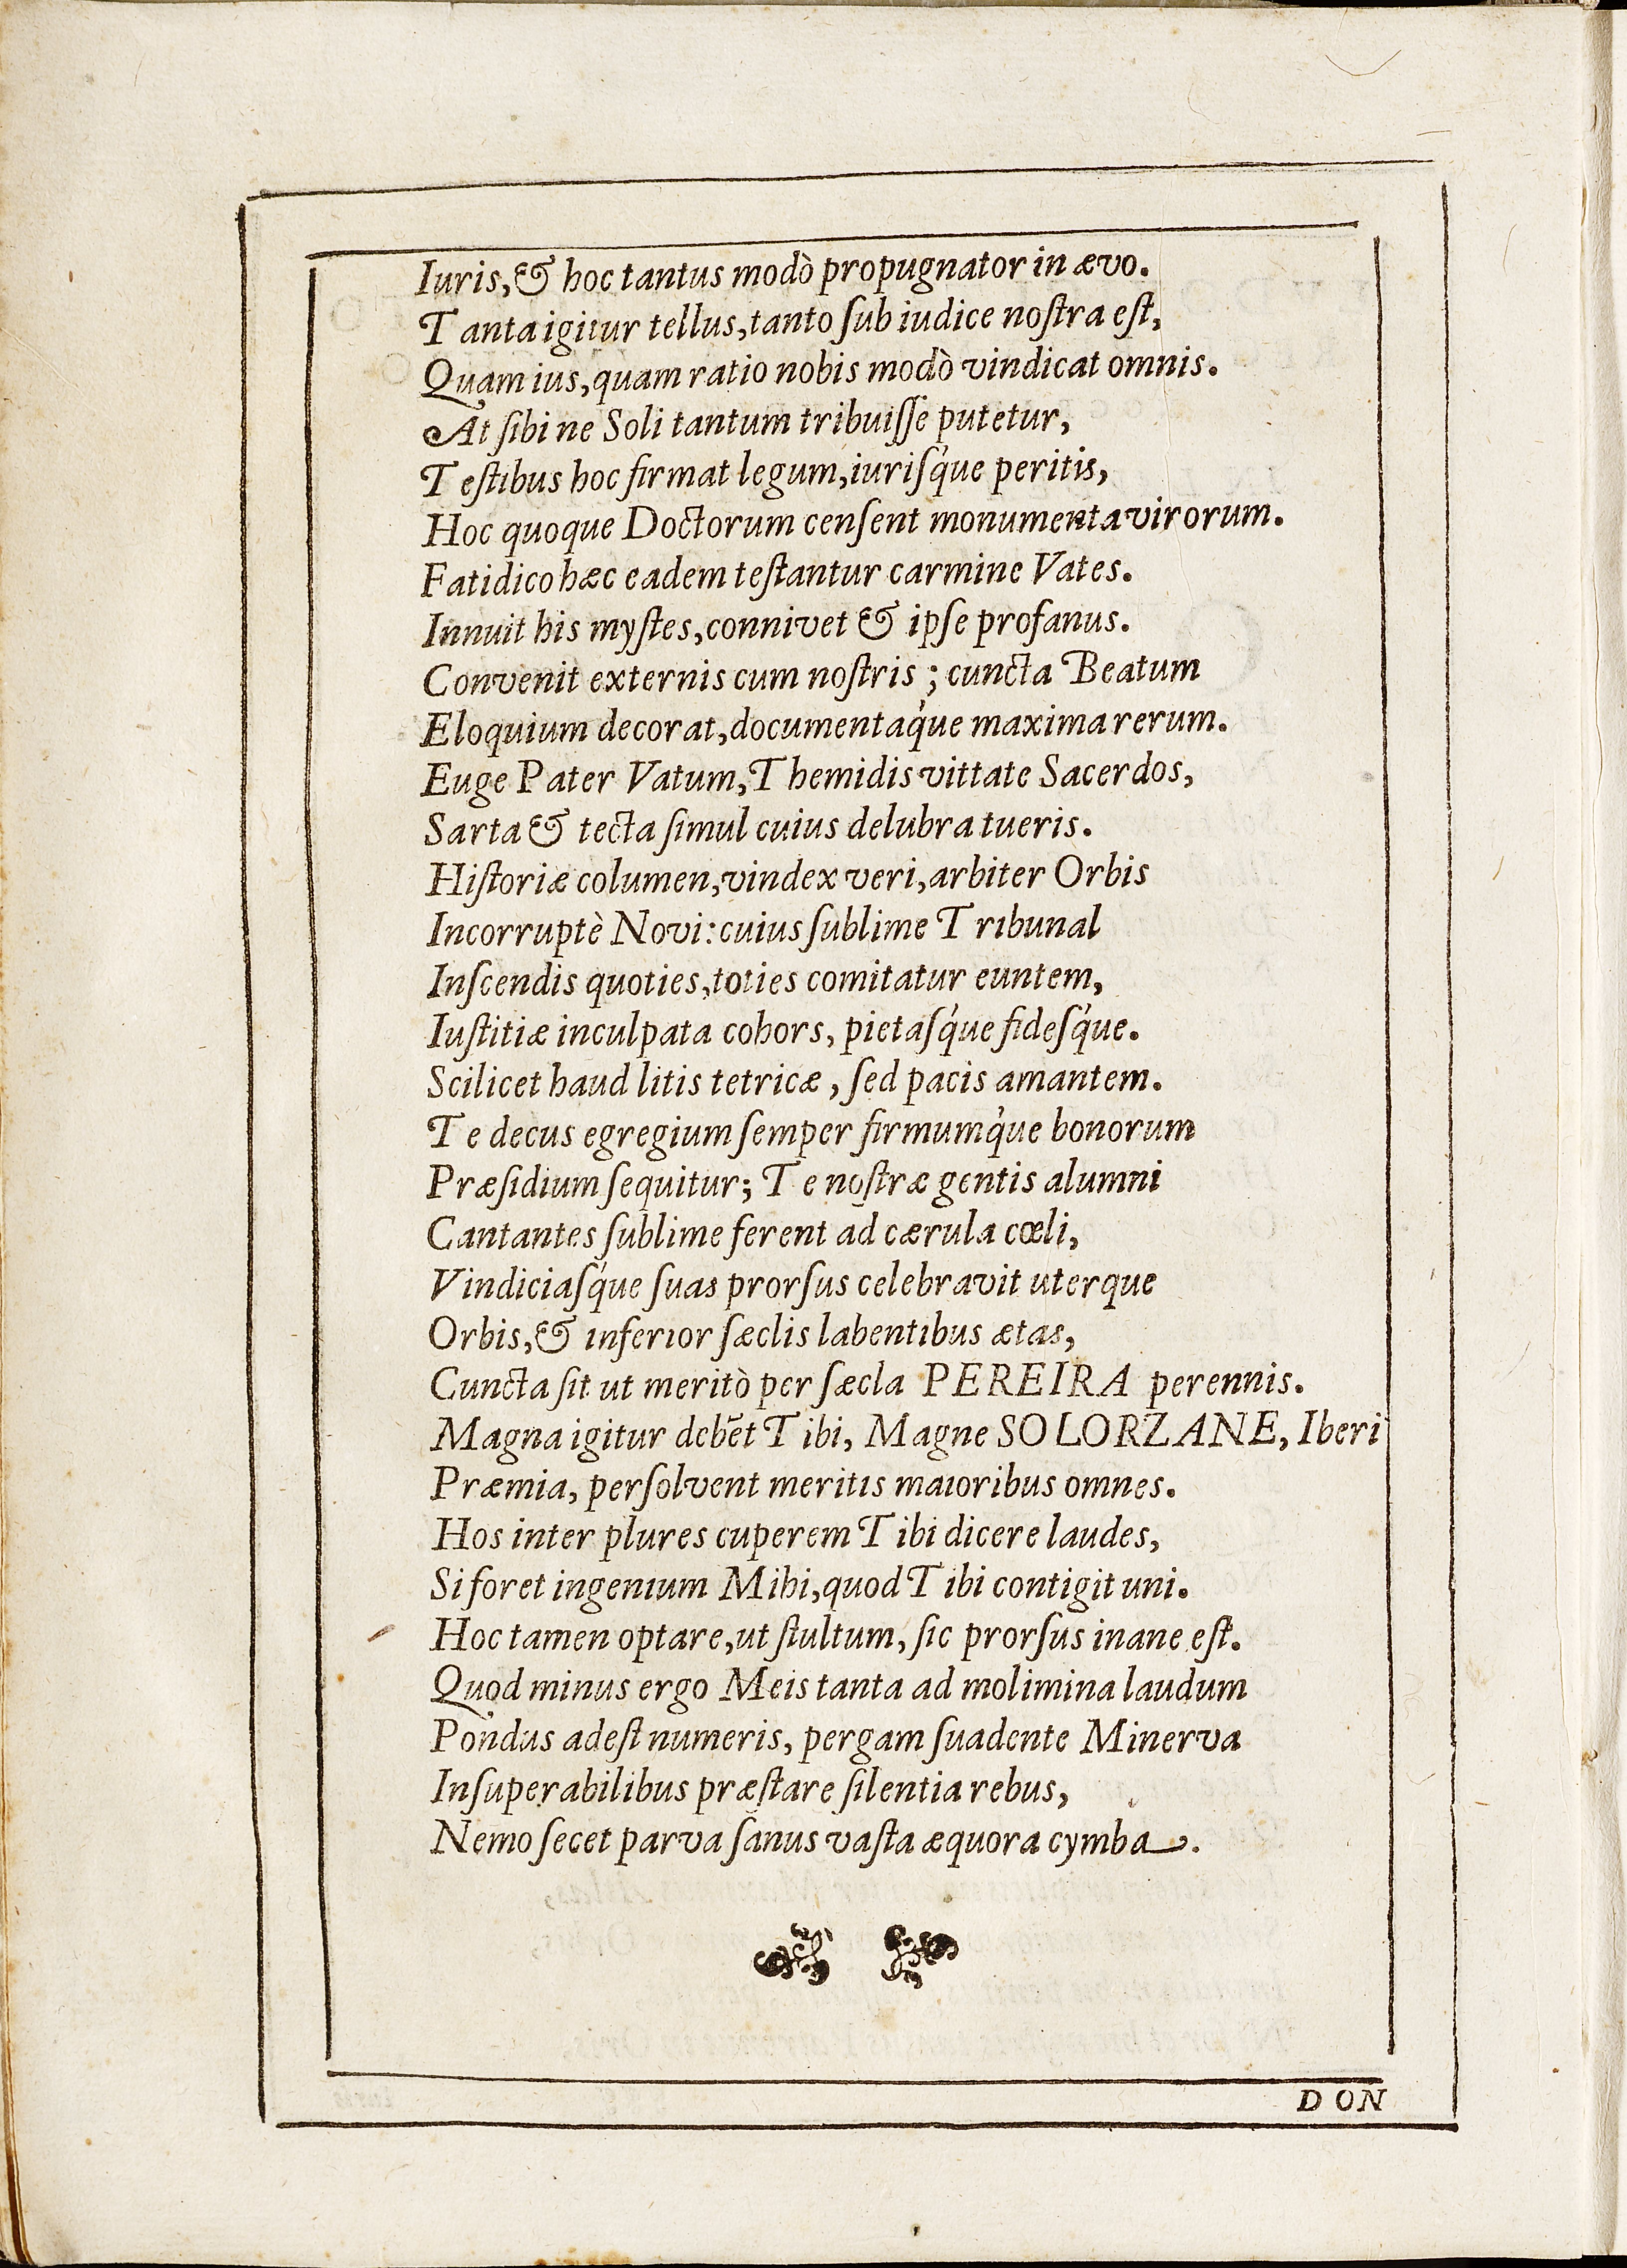 Iuris, & hoc tantus modò propugnator in ævo.
Tanta igitur tellus, tanto ſub iudice noſtra eſt,
Quam ius, quam ratio nobis modò vindicat omnis.
At ſibi ne Soli tantum tribuiſſe putetur,
Teſtibus hoc firmat legum, iuriſq́ue peritis,
Hoc quoque Doctorum cenſent monumenta virorum.
Fatidico hæc eadem teſtantur carmine Vates.
Innuit his myſtes, connivet & ipſe profanus.
Convenit externis cum noſtris ; cuncta Beatum
Eloquium decorat, documentaq́ue maxima rerum.
Euge Pater Vatum, Themidis vittate Sacerdos,
Sarta & tecta ſimul cuius delubra tueris.
Hiſtoriæ columen, vindex veri, arbiter Orbis
Incorruptè Novi: cuius ſublime Tribunal
Inſcendis quoties, toties comitatur euntem,
Iuſtitiæ inculpata cohors, pietaſq́ue fideſq́ue.
Scilicet haud litis tetricæ, ſed pacis amantem.
Te decus egregium ſemper firmumq́ue bonorum
Præſidium ſequitur; Te noſtræ gentis alumni
Cantantes ſublime ferent ad cærula cœli,
Vindiciaſq́ue ſuas prorſus celebravit uterque
Orbis, & inferior ſæclis labentibus ætas,
Cuncta ſit ut meritò per ſæcla PEREIRA perennis.
Magna igitur debēt Tibi, Magne SOLORZANE, Iberi
Præmia, perſolvent meritis maioribus omnes.
Hos inter plures cuperem Tibi dicere laudes,
Si foret ingenium Mihi, quod Tibi contigit uni.
Hoc tamen optare, ut ſtultum, ſic prorſus inane eſt.
Quod minus ergo Meis tanta ad molimina laudum
Pondus adeſt numeris, pergam ſuadente Minerva
Inſuperabilibus præſtare ſilentia rebus,
Nemo ſecet parva ſanus vaſta æquora cymba.
DON